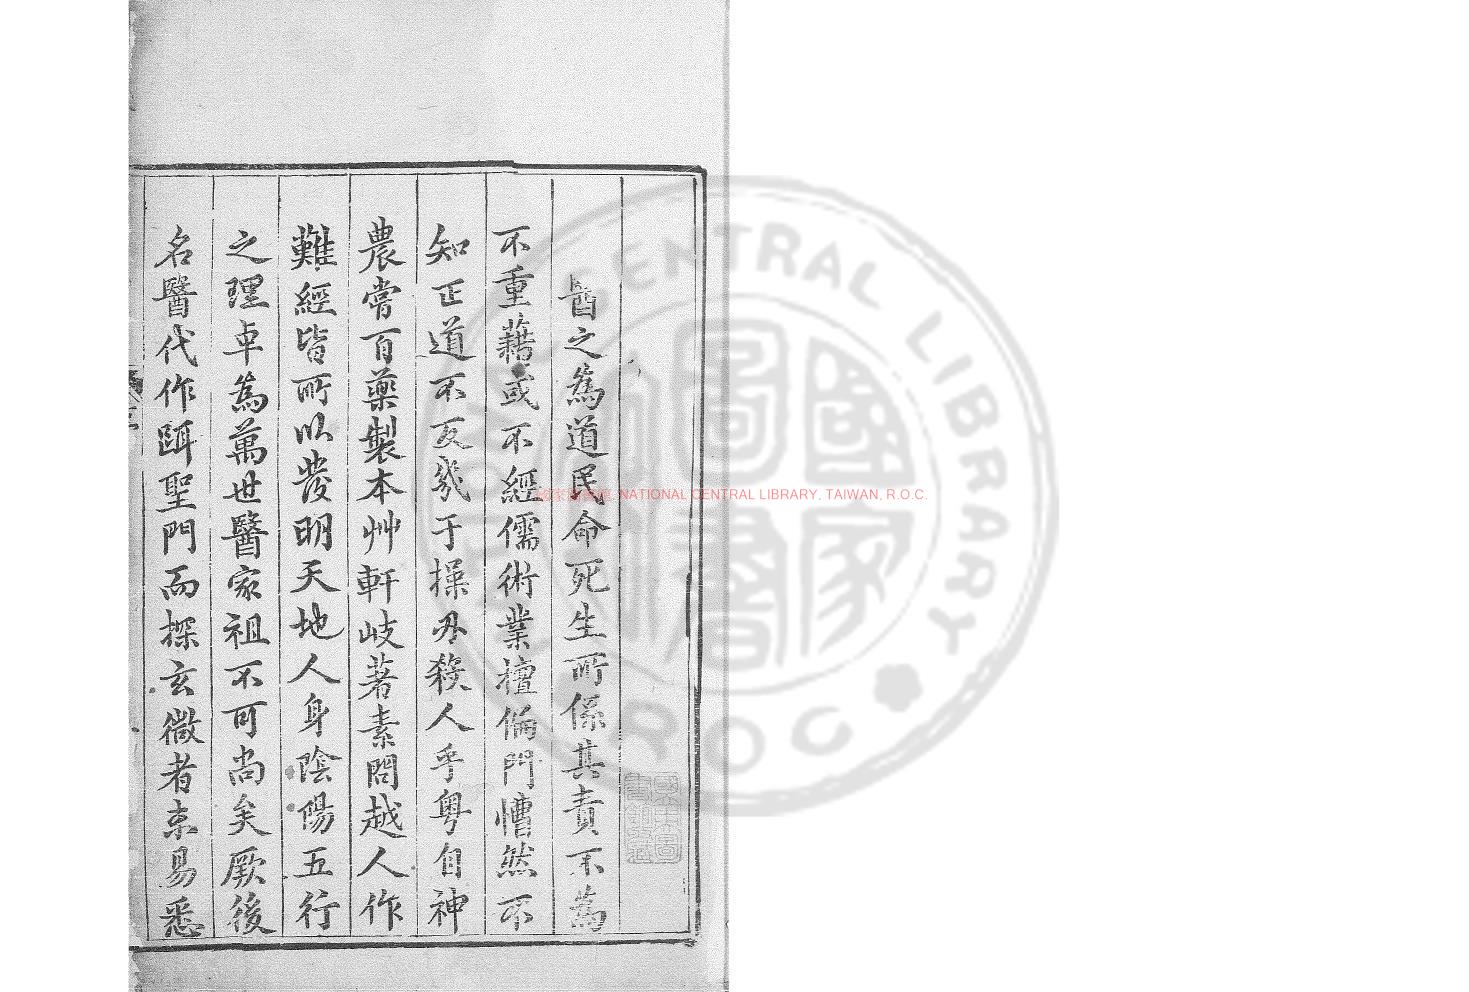 醫之為道民命死生所係其責不為
不重藉或不經儒術業擅偏門懵然不
知正道不反幾于操刃殺人乎粵自神
農嘗百藥製本艸軒岐著素問越人作
難經皆所以發明天地人身陰陽五行
之理卓為萬世醫家祖不可尚矣厥後
名醫代作踵聖門而探玄微者未易悉
國家圖書館 NATIONAL CENTRAL LIBRARY, TAIWAN, R.O.C.
CENTRAL LIBRARY
ROC
國家圖書